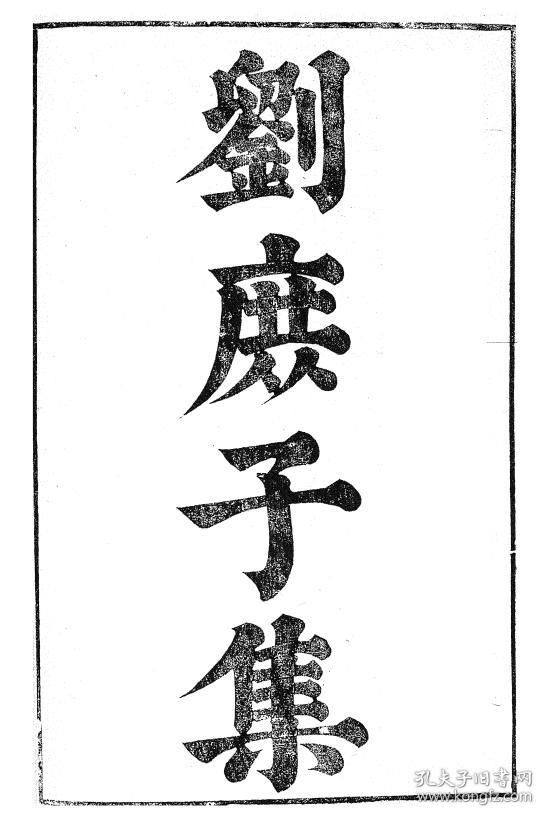 劉庶子集
孔夫子旧书网
www.kongfz.com